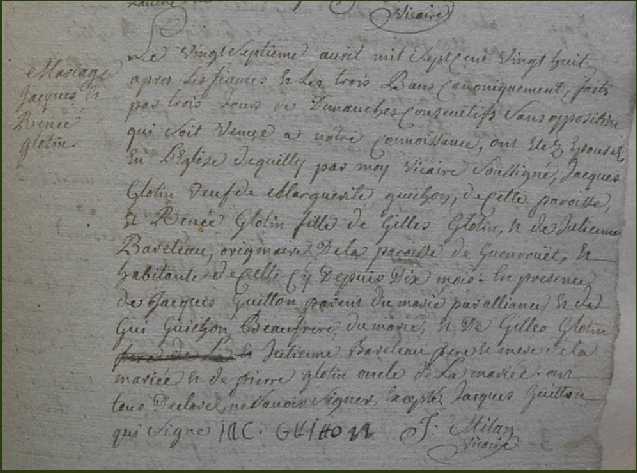 Vicaire
Le vingt Septieme avril mil Sept cent vingt huit
apres les fiances & les trois Bans canoniquement, faits
par trois jours de Dimanches consecutifs Sans opposition
qui soit venue a notre connoissance, ont etez Epousez
En L'Eglise dequilly par moy vicaire Soussigne, Jacques
Glotin veuf de Marguerite guihon, de cette paroisse,
& Renee Glotin fille de Gilles Glotin, & de Julienne
Bareteau, originaire De la paroisse de Guenrouët, &
habitante de celle cy Depuis Dix mois. En presence
de Jacques Guitton parent du marié par alliance, & de
Gui Guihon Beaufrere du marié, & De Gilles Glotin
& Julienne Bareteau pere & mere de la
mariée & de pierre glotin oncle de la mariée. ont
tous Declaré ne savoir signer, Excepté Jacques Guitton
qui Signe IAC: GUITTON J. Milan
vicaire
Mariage
Jacques &
Renee
glotin.